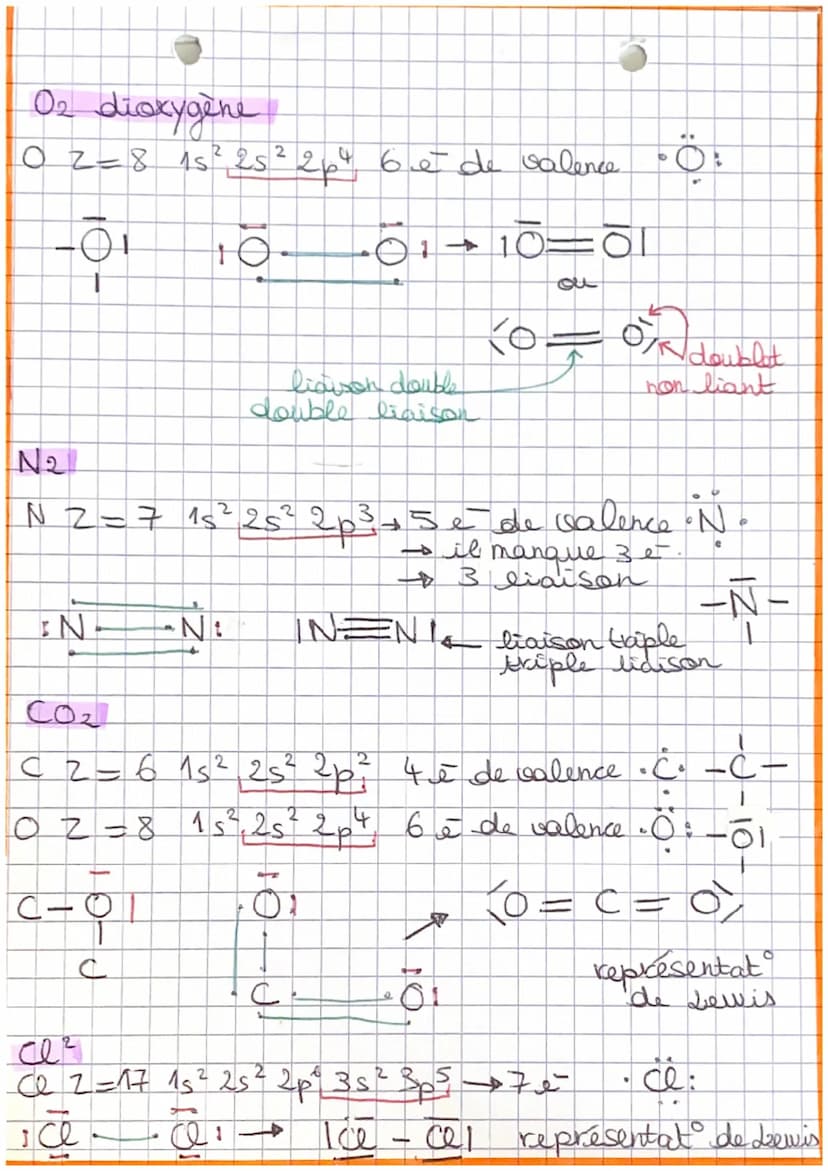 O₂ dioxygène
O Z=8 1s² 2s² 2p⁴ 6 e⁻ de valence ·Ö:
-O| |O — O| → |O=O|
ou
O = O doublet
liaison double non liant
double liaison
N₂
N Z=7 1s² 2s² 2p³ → 5 e⁻ de valence ·N·
→ il manque 3 e⁻.
→ 3 liaison
-N-
:N — N: |N≡N| ← liaison triple
triple liaison
CO₂
C Z=6 1s² 2s² 2p² 4 e⁻ de valence ·C· -C-
O Z=8 1s² 2s² 2p⁴ 6 e⁻ de valence ·Ö: -O|
C-O| O: O = C = O
C représentat°
C O: de Lewis
Cl²
Cl Z=17 1s² 2s² 2p⁶ 3s² 3p⁵ → 7 e⁻ ·Cl:
:Cl — Cl: → |Cl - Cl| représentat° de Lewis